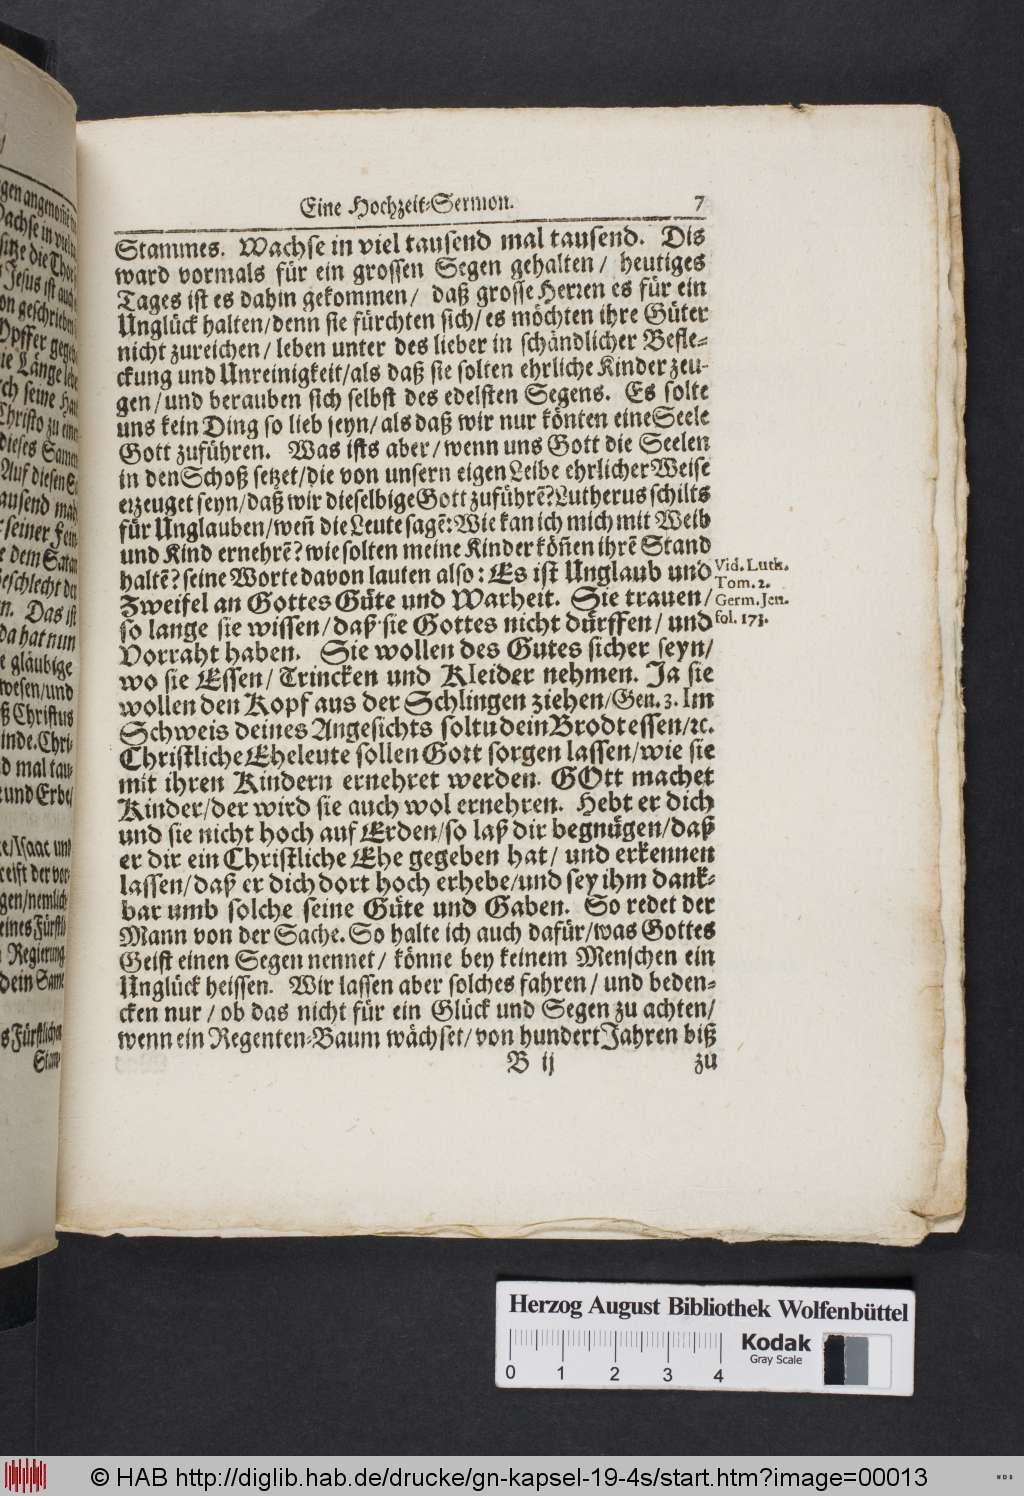 Eine Hochzeit-Sermon. 7
Stammes. Wachse in viel tausend mal tausend. Dis
ward vormals für ein grossen Segen gehalten / heutiges
Tages ist es dahin gekommen / daß grosse Herren es für ein
Unglück halten/denn sie fürchten sich/es möchten ihre Güter
nicht zureichen/leben unter des lieber in schändlicher Befle-
ckung und Unreinigkeit/als daß sie solten ehrliche Kinder zeu-
gen/und berauben sich selbst des edelsten Segens. Es solte
uns kein Ding so lieb seyn/als daß wir nur könten eine Seele
Gott zuführen. Was ists aber/wenn uns Gott die Seelen
in den Schoß setzet/die von unsern eigen Leibe ehrlicher Weise
erzeuget seyn/daß wir dieselbige Gott zuführẽ? Lutherus schilts
für Unglauben/weñ die Leute sagẽ: Wie kan ich mich mit Weib
und Kind ernehrẽ? wie solten meine Kinder köñen ihrẽ Stand
haltẽ? seine Worte davon lauten also: Es ist Unglaub und
Zweifel an Gottes Güte und Warheit. Sie trauen/
so lange sie wissen/daß sie Gottes nicht dürffen/und
Vorraht haben. Sie wollen des Gutes sicher seyn/
wo sie Essen/Trincken und Kleider nehmen. Ja sie
wollen den Kopf aus der Schlingen ziehen/Gen. 3. Im
Schweis deines Angesichts soltu dein Brodt essen/ꝛc.
Christliche Eheleute sollen Gott sorgen lassen/wie sie
mit ihren Kindern ernehret werden. GOtt machet
Kinder/der wird sie auch wol ernehren. Hebt er dich
und sie nicht hoch auf Erden/so laß dir begnügen/daß
er dir ein Christliche Ehe gegeben hat/ und erkennen
lassen/daß er dich dort hoch erhebe/und sey ihm dank-
bar umb solche seine Güte und Gaben. So redet der
Mann von der Sache. So halte ich auch dafür/was Gottes
Geist einen Segen nennet/ könne bey keinem Menschen ein
Unglück heissen. Wir lassen aber solches fahren/ und beden-
cken nur/ ob das nicht für ein Glück und Segen zu achten/
wenn ein Regenten-Baum wächset/von hundert Jahren biß
B ij zu
Vid. Luth.
Tom. 2.
Germ. Jen.
fol. 173.
gen angenom̃e
Wachse in viel
sitze die Thor
Jesus ist auch
von geschrieben
Opffer gege
die Länge lebe
ch seine Hau
Christo zu eine
dieses Samen
Auf diesen S
tausend mal
seiner Fein-
e dem Satan
Geschlecht der
n. Das ist
da hat nun
e gläubige
wesen/und
ß Christus
inde. Chri-
d mal tau-
und Erbe/
e/Isaac und
eist der vor-
gen/nemlich
eines Fürstl.
Regierung
dein Same
s Fürstlichen
Stam-
Herzog August Bibliothek Wolfenbüttel
Kodak
Gray Scale
0 1 2 3 4
© HAB http://diglib.hab.de/drucke/gn-kapsel-19-4s/start.htm?image=00013